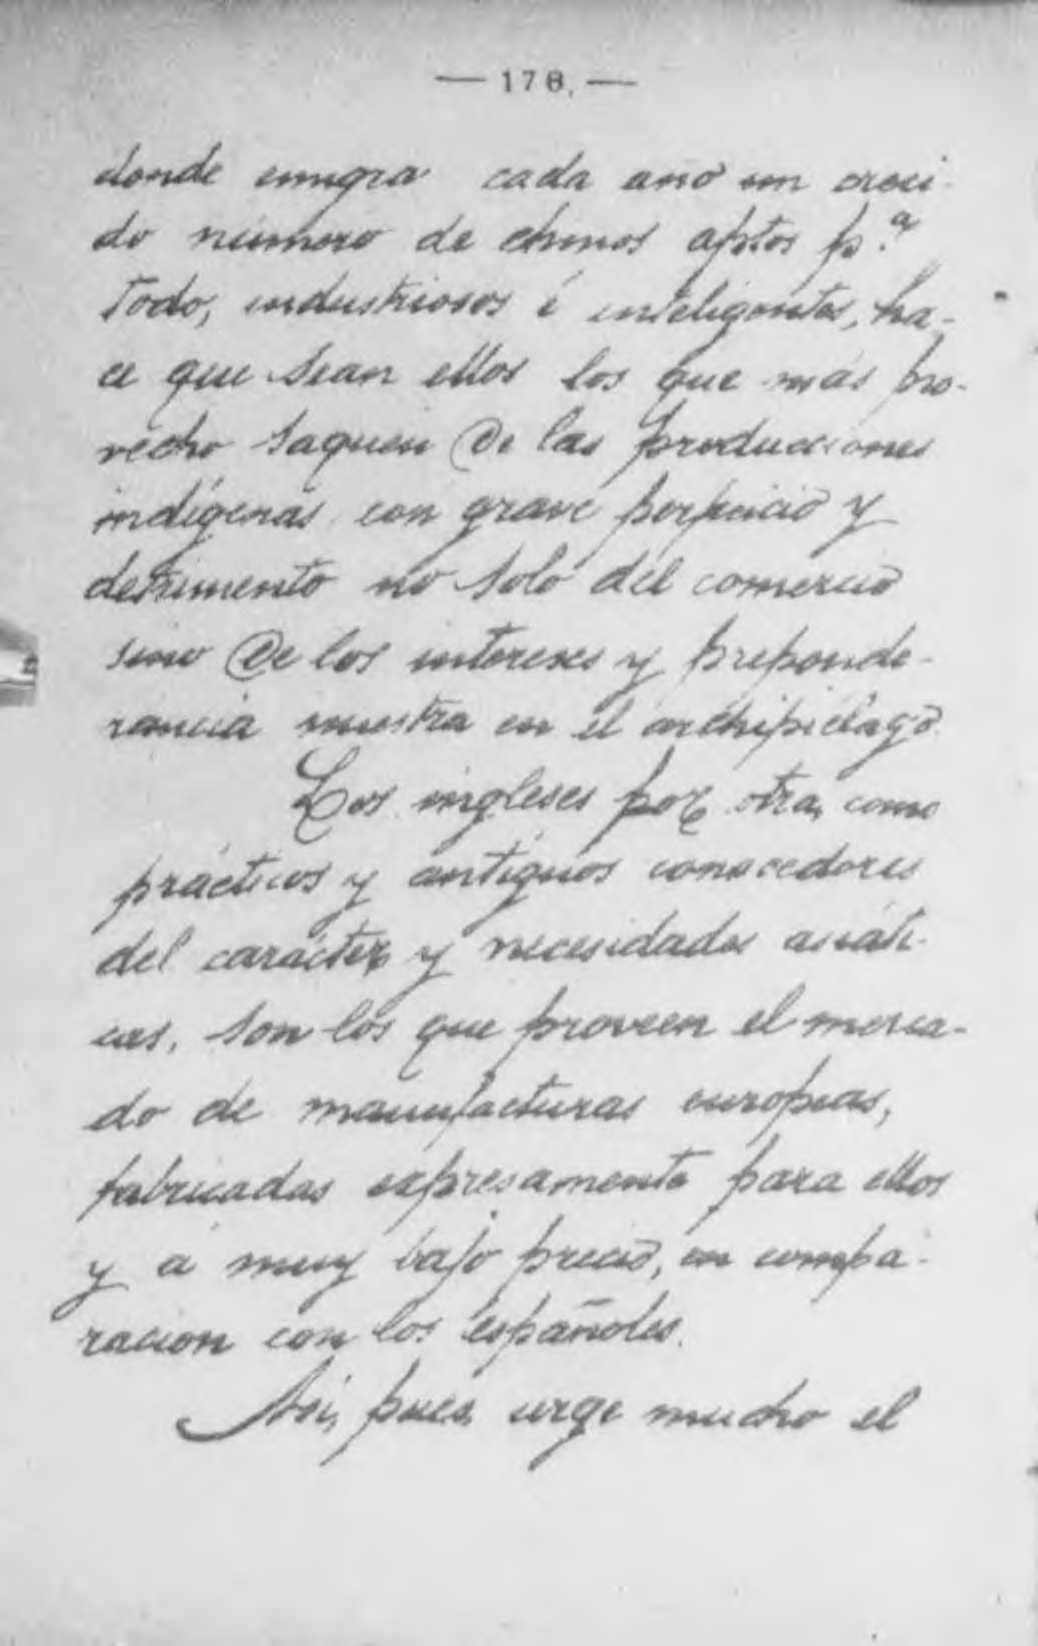 — 178. —
donde emigra cada año un creci-
do número de chinos aptos p.ª
todo, industriosos é inteligentes, ha-
ce que sean ellos los que más pro-
vecho saquen de las producciones
indígenas con grave perjuicio y
detrimento no solo del comercio
sino de los intereses y preponde-
rancia nuestra en el archipiélago.
Los ingleses por otra, como
prácticos y antiguos conocedores
del carácter y necesidades asiáti-
cas, son los que proveen el merca-
do de manufacturas europeas,
fabricadas expresamente para ellos
y á muy bajo precio, en compa-
racion con los españoles.
Asi, pues, urge mucho el